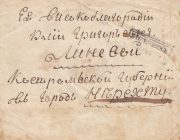 Ея Высокоблагородiю
Юлiи Григорьевне
Линевой
Костромской Губернiи
въ городъ Нерехту